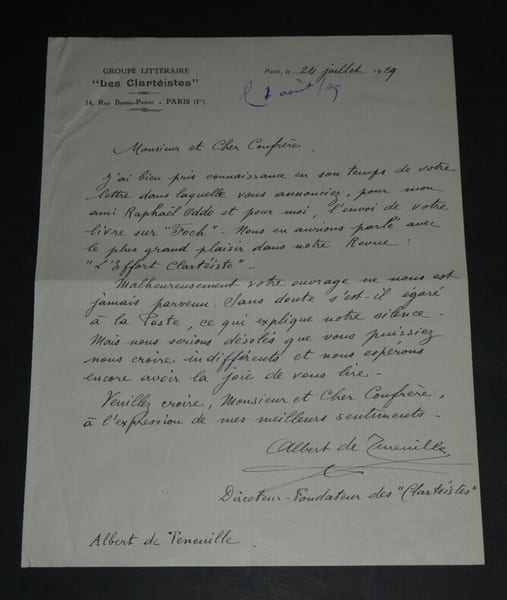 GROUPE LITTÉRAIRE
"Les Clartéistes"
14, Rue Bertin-Poirée - PARIS (1er)
Paris, le 24 juillet 1929
R 1 août/29
Monsieur et Cher Confrère,
J'ai bien pris connaissance en son temps de votre
lettre dans laquelle vous annonciez, pour mon
ami Raphaël Oddo et pour moi, l'envoi de votre
livre sur "Foch" - Nous en aurions parlé avec
le plus grand plaisir dans notre Revue :
"L'Effort Clartéiste" -
Malheureusement votre ouvrage ne nous est
jamais parvenu. Sans doute s'est-il égaré
à la Poste, ce qui explique notre silence -
Mais nous serions désolés que vous puissiez
nous croire indifférents et nous espérons
encore avoir la joie de vous lire -
Veuillez croire, Monsieur et Cher Confrère,
à l'expression de mes meilleurs sentiments -
Albert de Teneuille
Directeur-Fondateur des "Clartéistes"
Albert de Teneuille